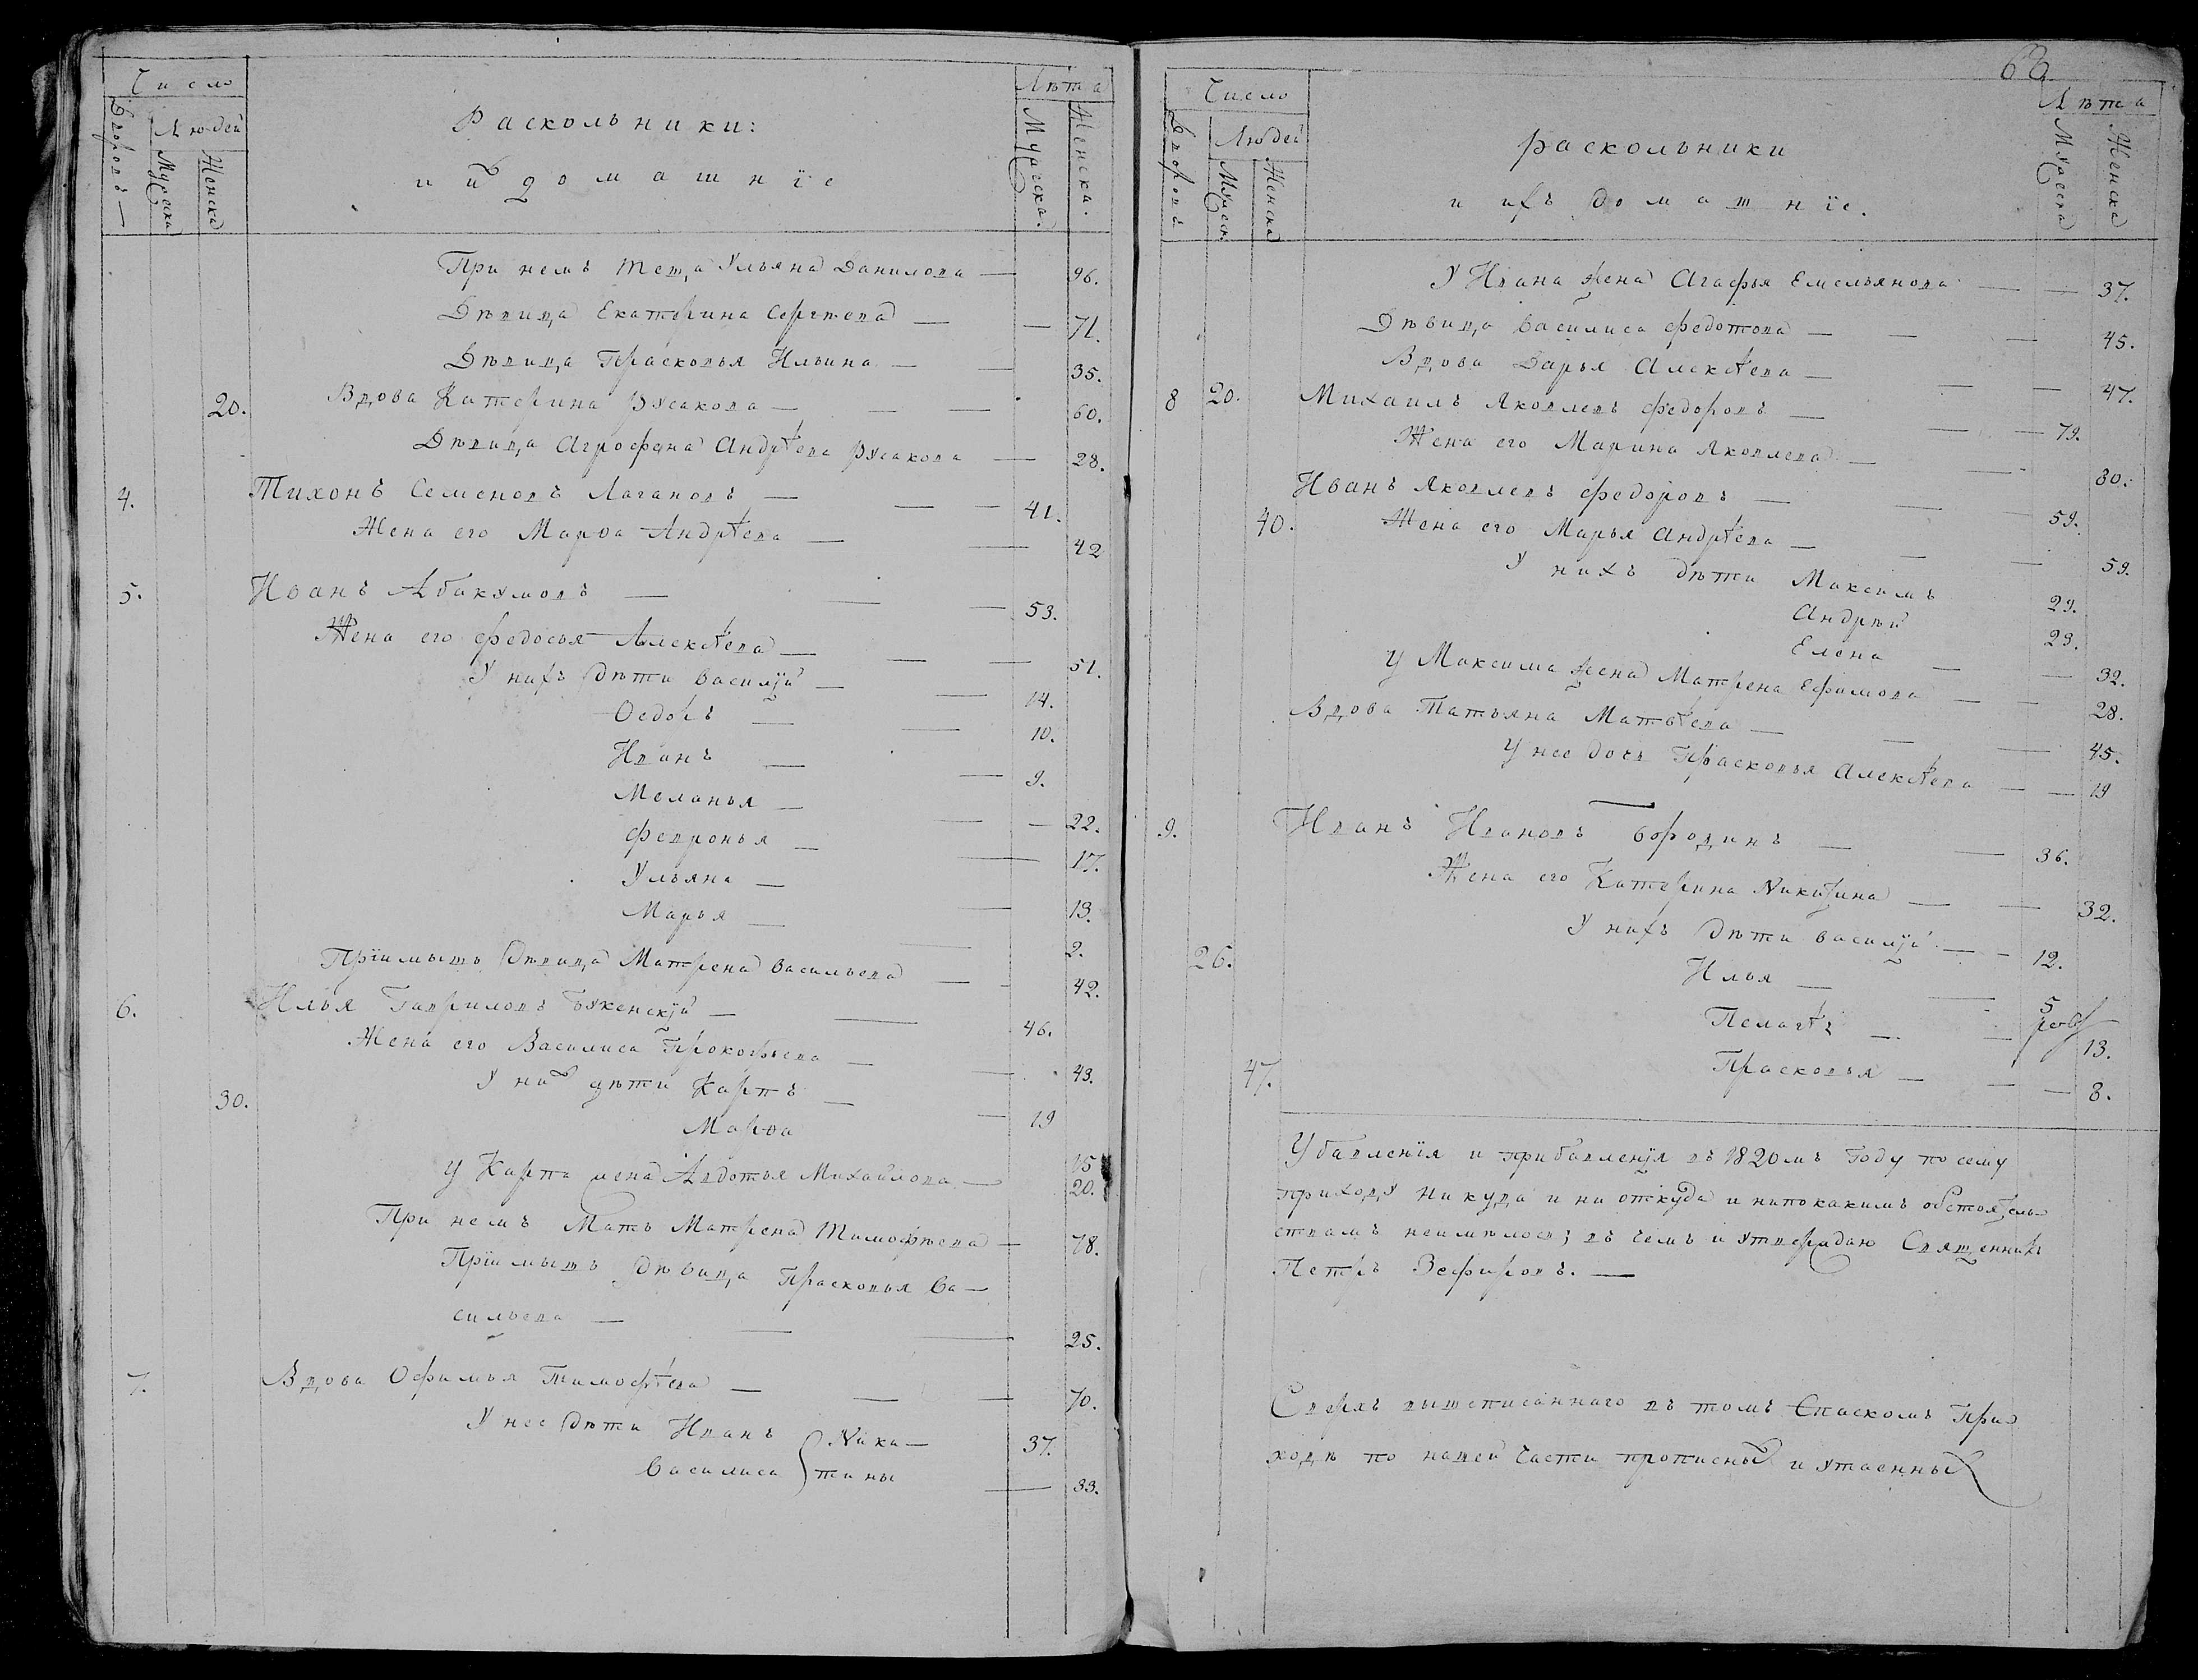 Число
Дворовъ
Людей
Мужеска
Женска
Раскольники:
и их домашніе
Лѣта
Мужеска.
Женска.
При немъ теща Ульяна Данилова — 96.
Дѣвица Екатерина Сергѣева — 71.
Дѣвица Прасковья Ильина — 35.
20. Вдова Катерина Русакова — 60.
Дѣвица Агрофена Андрѣева Русакова — 28.
4. Тихонъ Семеновъ Лагановъ — 41.
Жена его Марѳа Андрѣева — 42
5. Иванъ Абакумовъ — 53.
Жена его Федосья Алексѣева — 51.
У нихъ дѣти Василій — 14.
Ѳедоръ — 10.
Иванъ — 9.
Меланья — 22.
Февронья — 17.
Ульяна — 13.
Марья — 2.
Пріимышъ дѣвица Матрена Васильева — 42.
6. Илья Гавриловъ — 46.
Жена его Василиса Прокофьева — 43.
30. У них дѣти Карпъ — 19
Марѳа 15
У Карпа жена Авдотья Михайлова — 20.
При немъ Мать Матрена Тимофѣева — 78.
Пріимышъ дѣвица Прасковья Ва-
сильева — 25.
7. Вдова Офимья Тимофѣева — 70.
У нее дѣти Иванъ } Ники- 37.
Василиса } тины 33.
63
Число
Дворовъ
Людей
Мужеск.
Женска
раскольники
и ихъ домашніе.
Лѣта
Мужеска
Женска
У Ивана жена Агафья Емельянова — 37.
Дѣвица Василиса Федотова — 45.
Вдова Дарья Алексѣева — 47.
8 20. Михаилъ Яковлевъ Федоровъ — 79.
Жена его Марина Яковлева — 80.
Иванъ Яковлевъ Федоровъ — 59.
40. Жена его Марья Андрѣева — 59.
У нихъ дѣти Максимъ 29.
Андрѣй 23.
Елена — 32.
У Максима жена Матрена Ефимова — 28.
Вдова Татьяна Матвѣева — 45.
У нее дочь Прасковья Алексѣева — 19
9. Иванъ Ивановъ Бородинъ — 36.
Жена его Катерина Никитина — 32.
У нихъ дѣти Василій — 12.
26. Илья — 5
Пелагѣя — 13.
47. Прасковья — 8.
Убавленія и прибавленія въ 1820мъ Году по сему
приходу никуда и ни откуда и ни по какимъ обстоятель-
ствамъ неимѣлось; въ чемъ и утверждаю Священникъ
Петръ Зефировъ. —
Сверхъ вышеписаннаго въ томъ Спаскомъ При-
ходѣ по нашей части прописныхъ и утаенныхъ